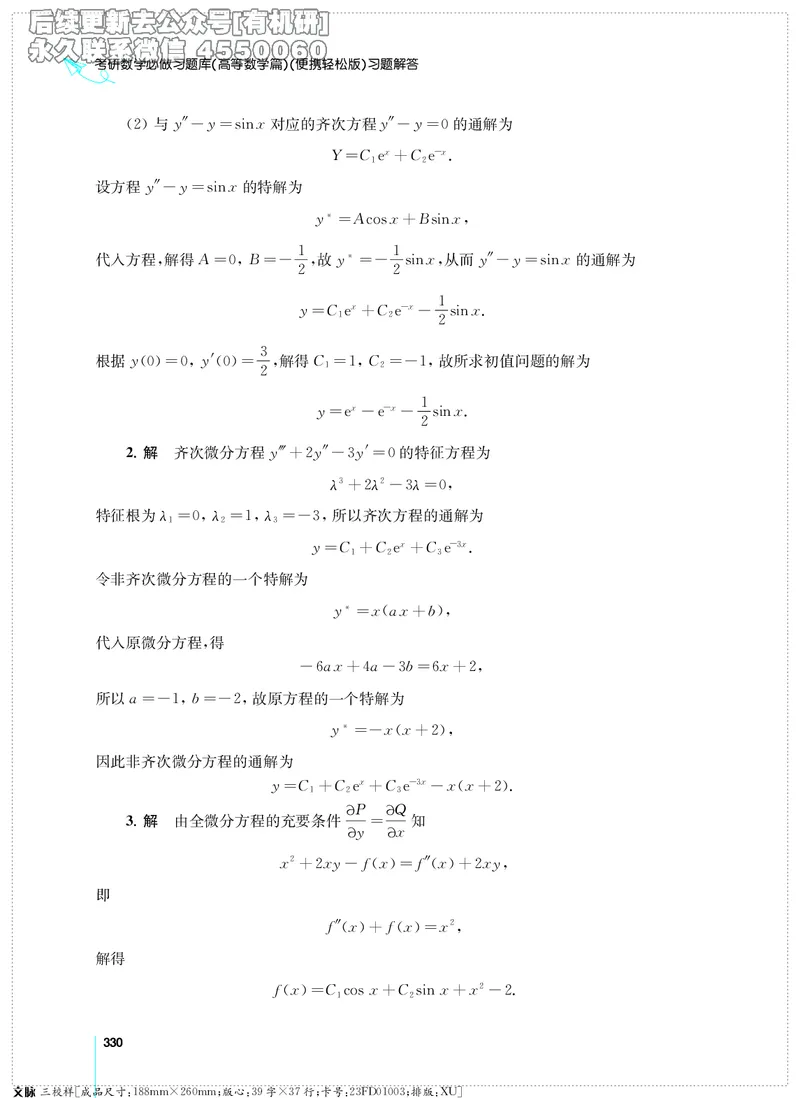 后续更新去公众号[有机研]
永久联系微信 4550060
考研数学必做习题库(高等数学篇)(便携轻松版)习题解答
(2) 与 y″－y＝sin x 对应的齐次方程 y″－y＝0 的通解为
Y＝C₁eˣ＋C₂e⁻ˣ.
设方程 y″－y＝sin x 的特解为
y*＝Acos x＋Bsin x,
代入方程,解得 A＝0, B＝－1/2,故 y*＝－1/2 sin x,从而 y″－y＝sin x 的通解为
y＝C₁eˣ＋C₂e⁻ˣ－1/2 sin x.
根据 y(0)＝0, y′(0)＝3/2,解得 C₁＝1, C₂＝－1, 故所求初值问题的解为
y＝eˣ－e⁻ˣ－1/2 sin x.
2. 解 齐次微分方程 y‴＋2y″－3y′＝0 的特征方程为
λ³＋2λ²－3λ＝0,
特征根为 λ₁＝0, λ₂＝1, λ₃＝－3, 所以齐次方程的通解为
y＝C₁＋C₂eˣ＋C₃e⁻³ˣ.
令非齐次微分方程的一个特解为
y*＝x(ax＋b),
代入原微分方程,得
－6ax＋4a－3b＝6x＋2,
所以 a＝－1, b＝－2, 故原方程的一个特解为
y*＝－x(x＋2),
因此非齐次微分方程的通解为
y＝C₁＋C₂eˣ＋C₃e⁻³ˣ－x(x＋2).
3. 解 由全微分方程的充要条件 ∂P/∂y＝∂Q/∂x 知
x²＋2xy－f(x)＝f″(x)＋2xy,
即
f″(x)＋f(x)＝x²,
解得
f(x)＝C₁cos x＋C₂sin x＋x²－2.
330
文脉 三校样[成品尺寸:188mm×260mm;版心:39 字×37 行;卡号:23FD01003;排版:XU]